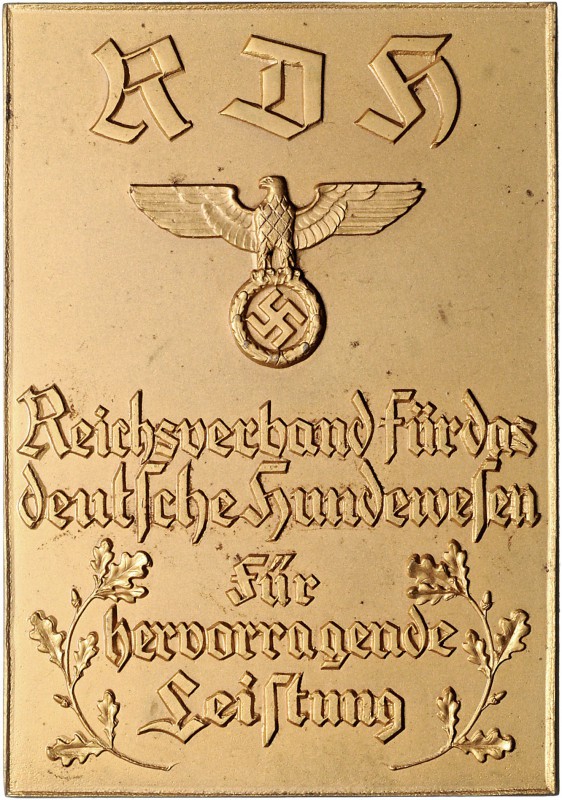 RDH
Reichsverband für das
deutſche Hundeweſen
Für
hervorragende
Leiſtung